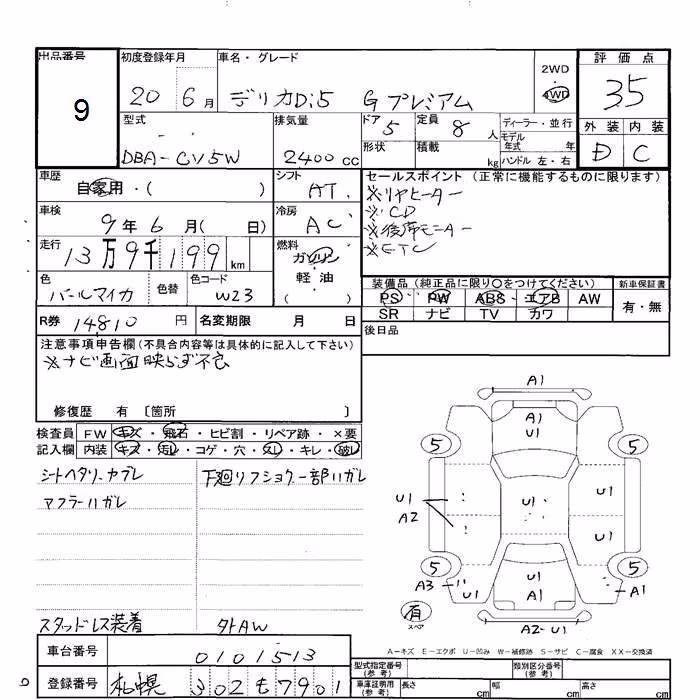 出品番号
9
初度登録年月
20 6月
車名・グレード
デリカD:5 Gプレミアム
2WD
4WD
評価点
35
外装 内装
D C
型式
DBA-CV5W
排気量
2400 cc
ドア 5
定員 8 人
ディーラー・並行
モデル年式 年
形状
積載 kg
ハンドル 左・右
車歴
自家用・( )
シフト
AT
セールスポイント (正常に機能するものに限ります)
※リヤヒーター
※CD
※後席モニター
※ETC
車検
9年6月( 日)
冷房
AC
走行
13万9千199 km
燃料
ガソリン
軽油
( )
色
パールマイカ
色替
色コード
W23
装備品 (純正品に限り○をつけてください)
PS PW ABS エアB AW
SR ナビ TV カワ
新車保証書
有・無
R券 14810 円
名変期限 月 日
後日品
注意事項申告欄 (不具合内容等は具体的に記入して下さい)
※ナビ画面映らず不良
修復歴 有 〔箇所 〕
検査員記入欄
FW キズ・飛石・ヒビ割・リペア跡・×要
内装 キズ・汚レ・コゲ・穴・欠レ・キレ・破レ
シートヘタリ、カブレ
マフラーハガレ
下廻りフショク一部ハガレ
スタッドレス装着
外AW
A1
A1
U1
5
5
U1
A2
U1
U1
U1
5
5
A3
U1
U1
A1
A1
有
スペア
A2-U1
A-キズ E-エクボ U-凹み W-補修跡 S-サビ C-腐食 XX-交換済
車台番号
0101513
登録番号
札幌 302も7901
型式指定番号(参考)
類別区分番号(参考)
車庫証明用(参考)
長さ cm
幅 cm
高さ cm